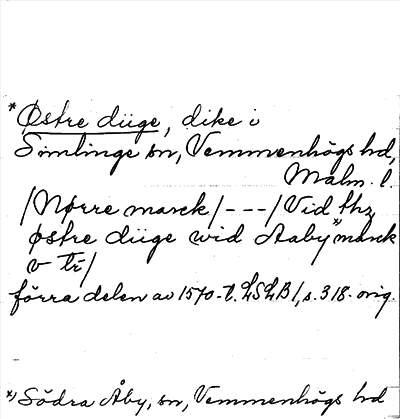 *Østre diige, dike i
Simlinge sn, Vemmenhögs hd,
Malm. l.
/Nørre marck/---/Vid thz
østre diige wid Aaby*) marck
v tr/
förra delen av 1570-t. LSLB1, s. 318. orig.
*) Södra Åby, sn, Vemmenhögs hd